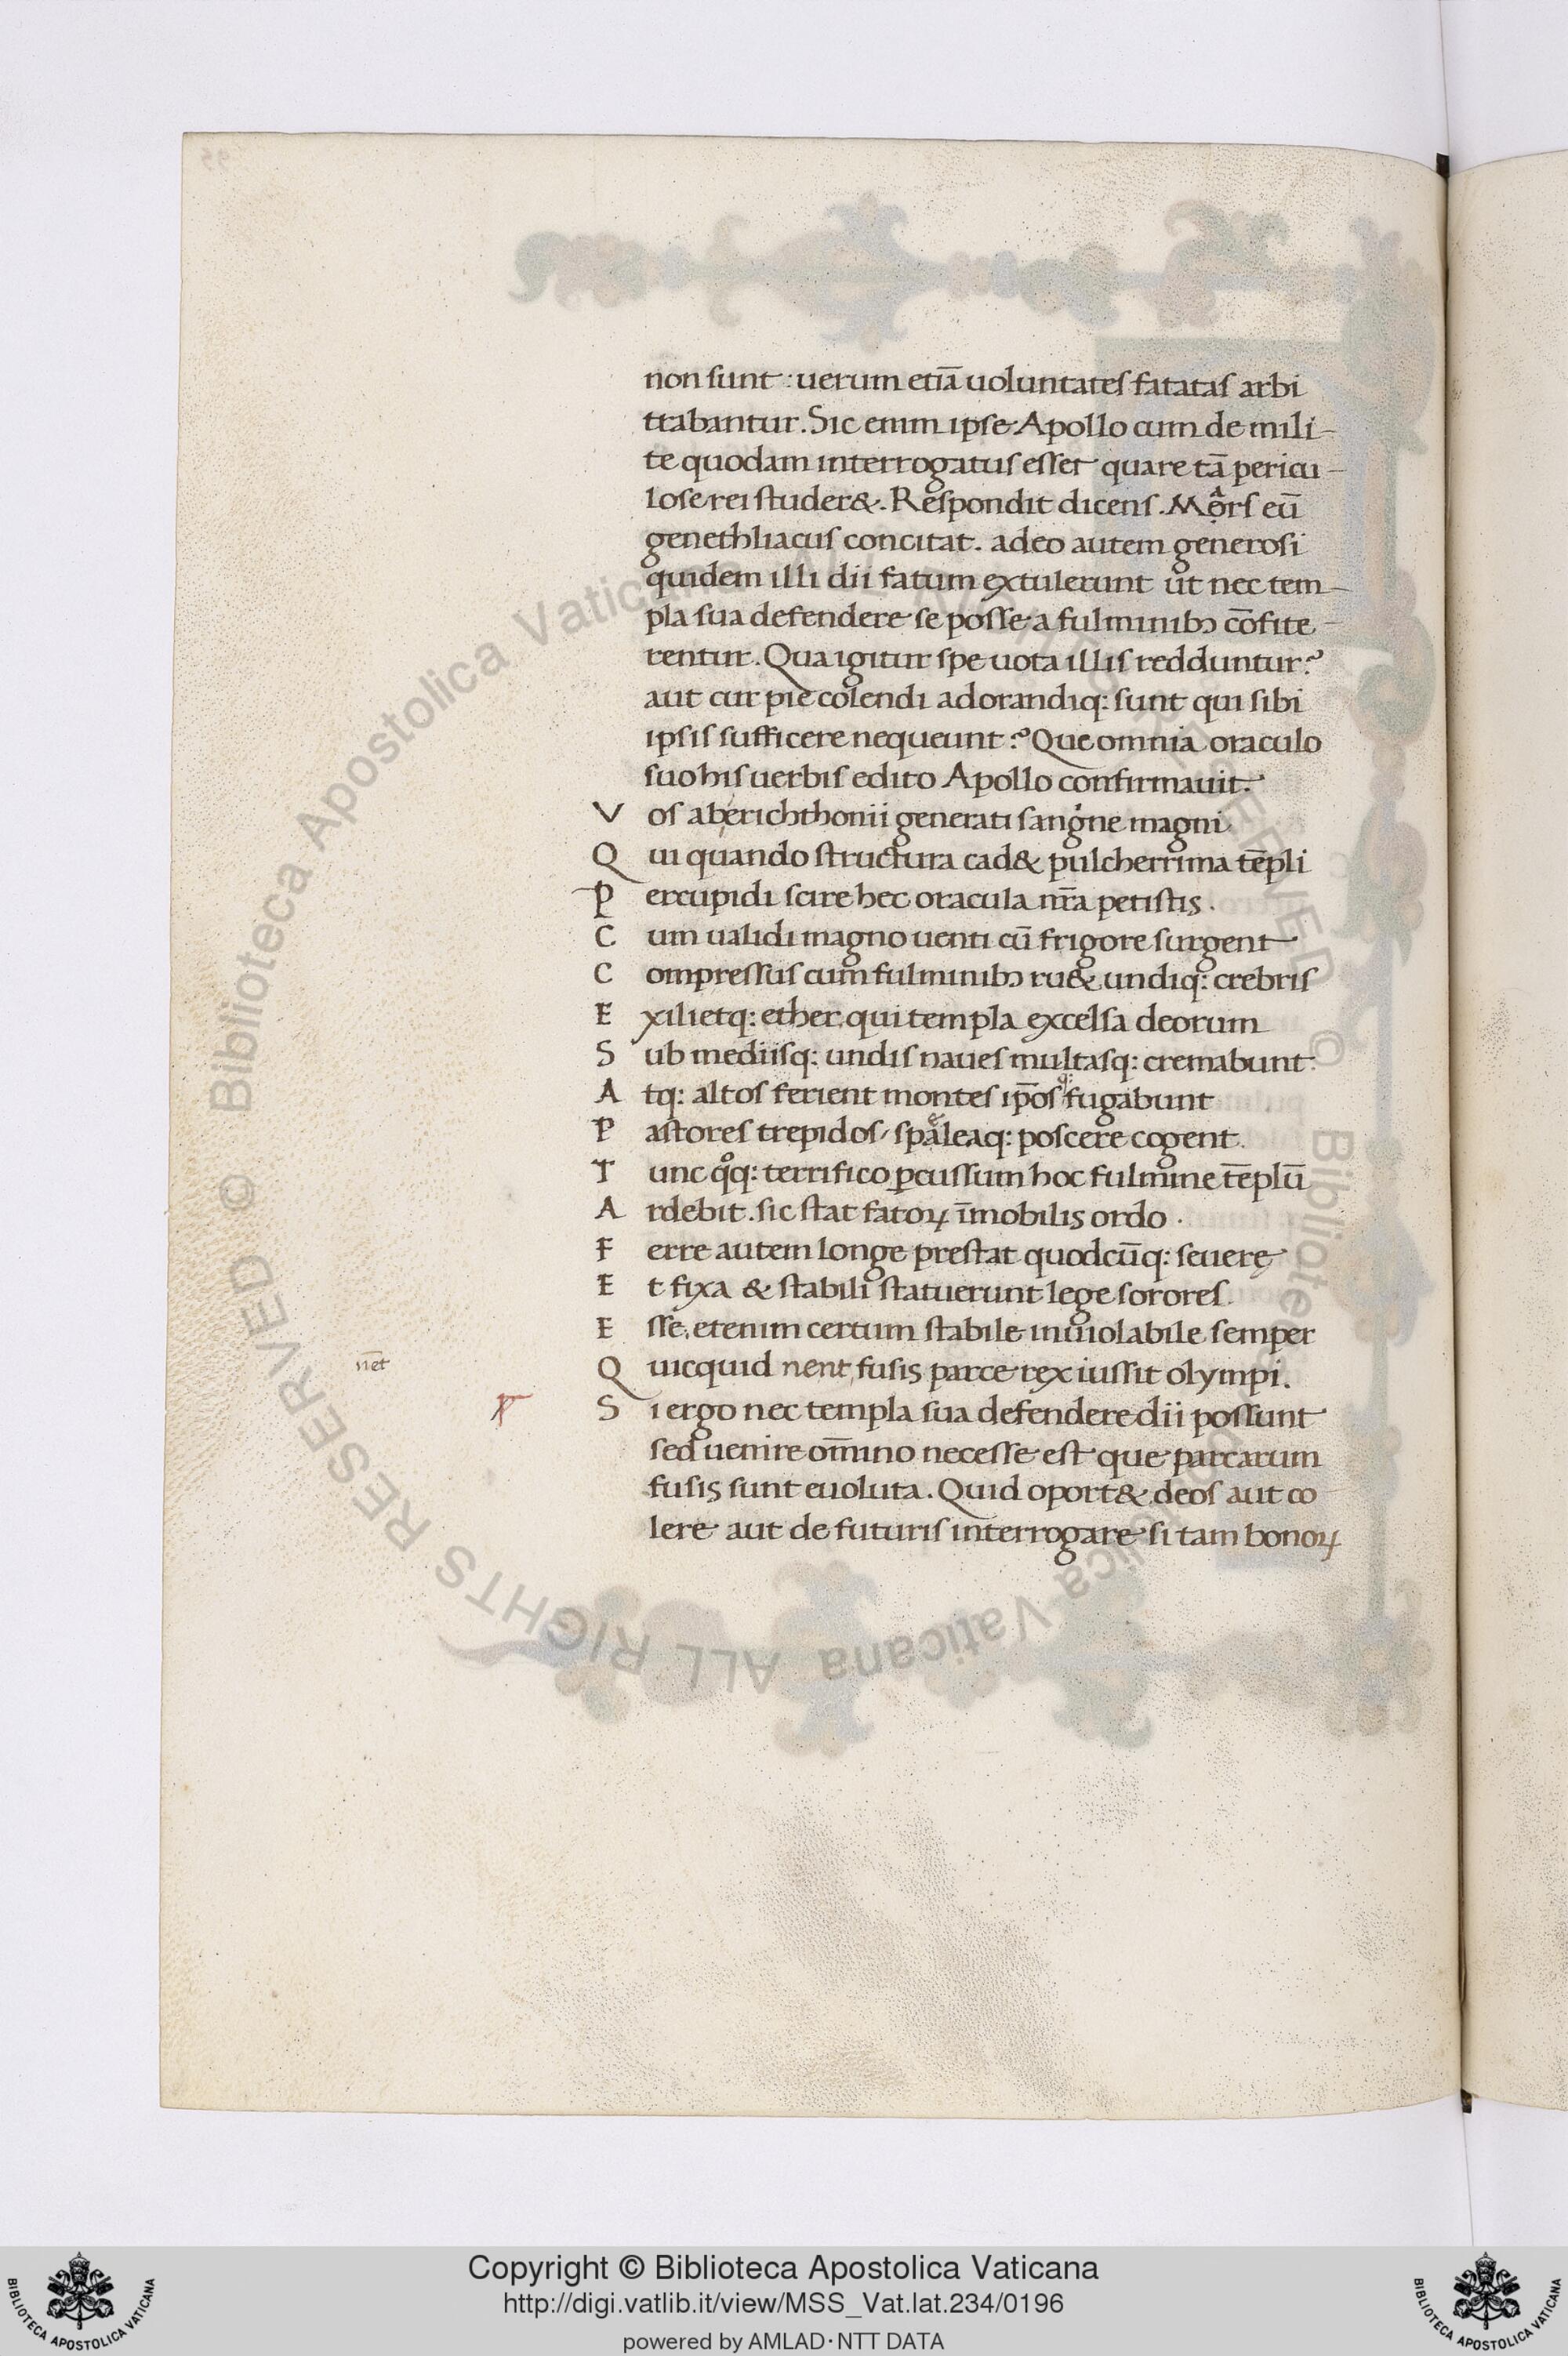 non sunt : uerum etiā uoluntates fatatas arbi
trabantur. Sic enim ipse Apollo cum de mili-
te quodam interrogatus esset quare tā pericu-
lose rei studer&. Respondit dicens. Mors eū
genethliacus concitat. adeo autem generosi
quidem illi dii fatum extulerunt ut nec tem-
pla sua defendere se posse a fulminibꝫ cōfite-
rentur. Qua igitur spe uota illis redduntur?
aut cur pie colendi adorandiq: sunt qui sibi
ipsis sufficere nequeunt? Que omnia oraculo
suo his uerbis edito Apollo confirmauit.
V os ab erichthonii generati sangine magni
Q ui quando structura cad& pulcherrima tēpli
P ercupidi scire hec oracula nr̄a petistis.
C um ualidi magno uenti cū frigore surgent
C ompressus cum fulminibꝫ ru& undiq: crebris
E xilietq: ether qui templa excelsa deorum
S ub mediisq: undis naues multasq: cremabunt.
A tq: altos ferient montes ip̄osq: fugabunt
P astores trepidos, speleaq: poscere cogent.
T unc qͦq: terrifico ꝑcussum hoc fulmine tēplū
A rdebit. sic stat fatoꝝ īmobilis ordo.
F erre autem longe prestat quodcūq: seuerę
E t fixa & stabili statuerunt lege sorores.
E sse, etenim certum stabile inuiolabile semper
nēt
Q uicquid nent, fusis parce rex iussit olympi.
S i ergo nec templa sua defendere dii possunt
sed uenire om̄ino necesse est que parcarum
fusis sunt euoluta. Quid oport& deos aut co
lere aut de futuris interrogare si tam bonoꝝ
© Biblioteca Apostolica Vaticana ALL RIGHTS RESERVED
© Biblioteca Apostolica Vaticana ALL RIGHTS RESERVED
Copyright © Biblioteca Apostolica Vaticana
http://digi.vatlib.it/view/MSS_Vat.lat.234/0196
powered by AMLAD·NTT DATA
BIBLIOTECA APOSTOLICA VATICANA
BIBLIOTECA APOSTOLICA VATICANA